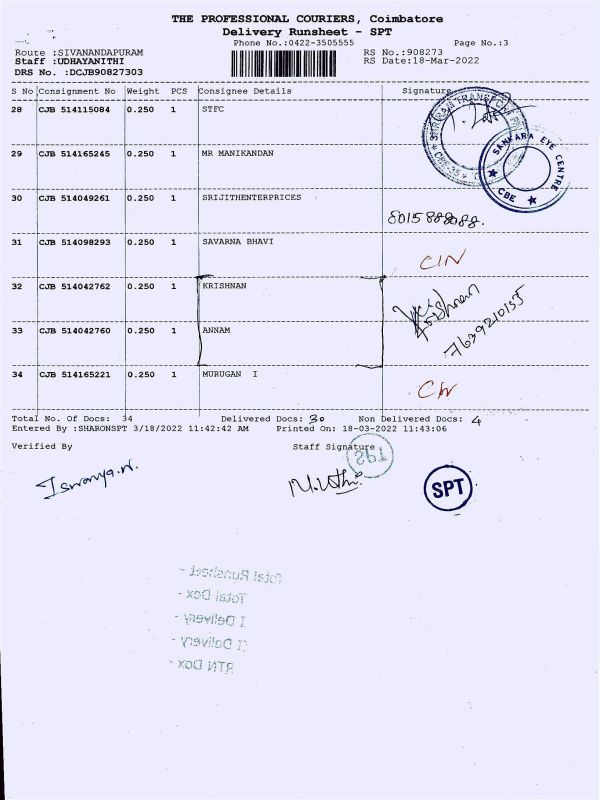 THE PROFESSIONAL COURIERS, Coimbatore
Delivery Runsheet - SPT
Phone No.:0422-3505555 Page No.:3
Route :SIVANANDAPURAM RS No.:908273
Staff :UDHAYANITHI RS Date:18-Mar-2022
DRS No. :DCJB90827303
S No Consignment No Weight PCS Consignee Details Signature
28 CJB 514115084 0.250 1 STFC
29 CJB 514165245 0.250 1 MR MANIKANDAN
SANKARA EYE CENTRE
CBE
30 CJB 514049261 0.250 1 SRIJITHENTERPRICES
8015888088.
31 CJB 514098293 0.250 1 SAVARNA BHAVI
CIN
32 CJB 514042762 0.250 1 KRISHNAN
Krishnan
7639210135
33 CJB 514042760 0.250 1 ANNAM
34 CJB 514165221 0.250 1 MURUGAN I
Total No. Of Docs: 34 Delivered Docs: 30 Non Delivered Docs: 4
Entered By :SHARONSPT 3/18/2022 11:42:42 AM Printed On: 18-03-2022 11:43:06
Verified By Staff Signature
SPT
Total Runsheet -
Total Dox -
I Delivery -
II Delivery -
RTN Dox -